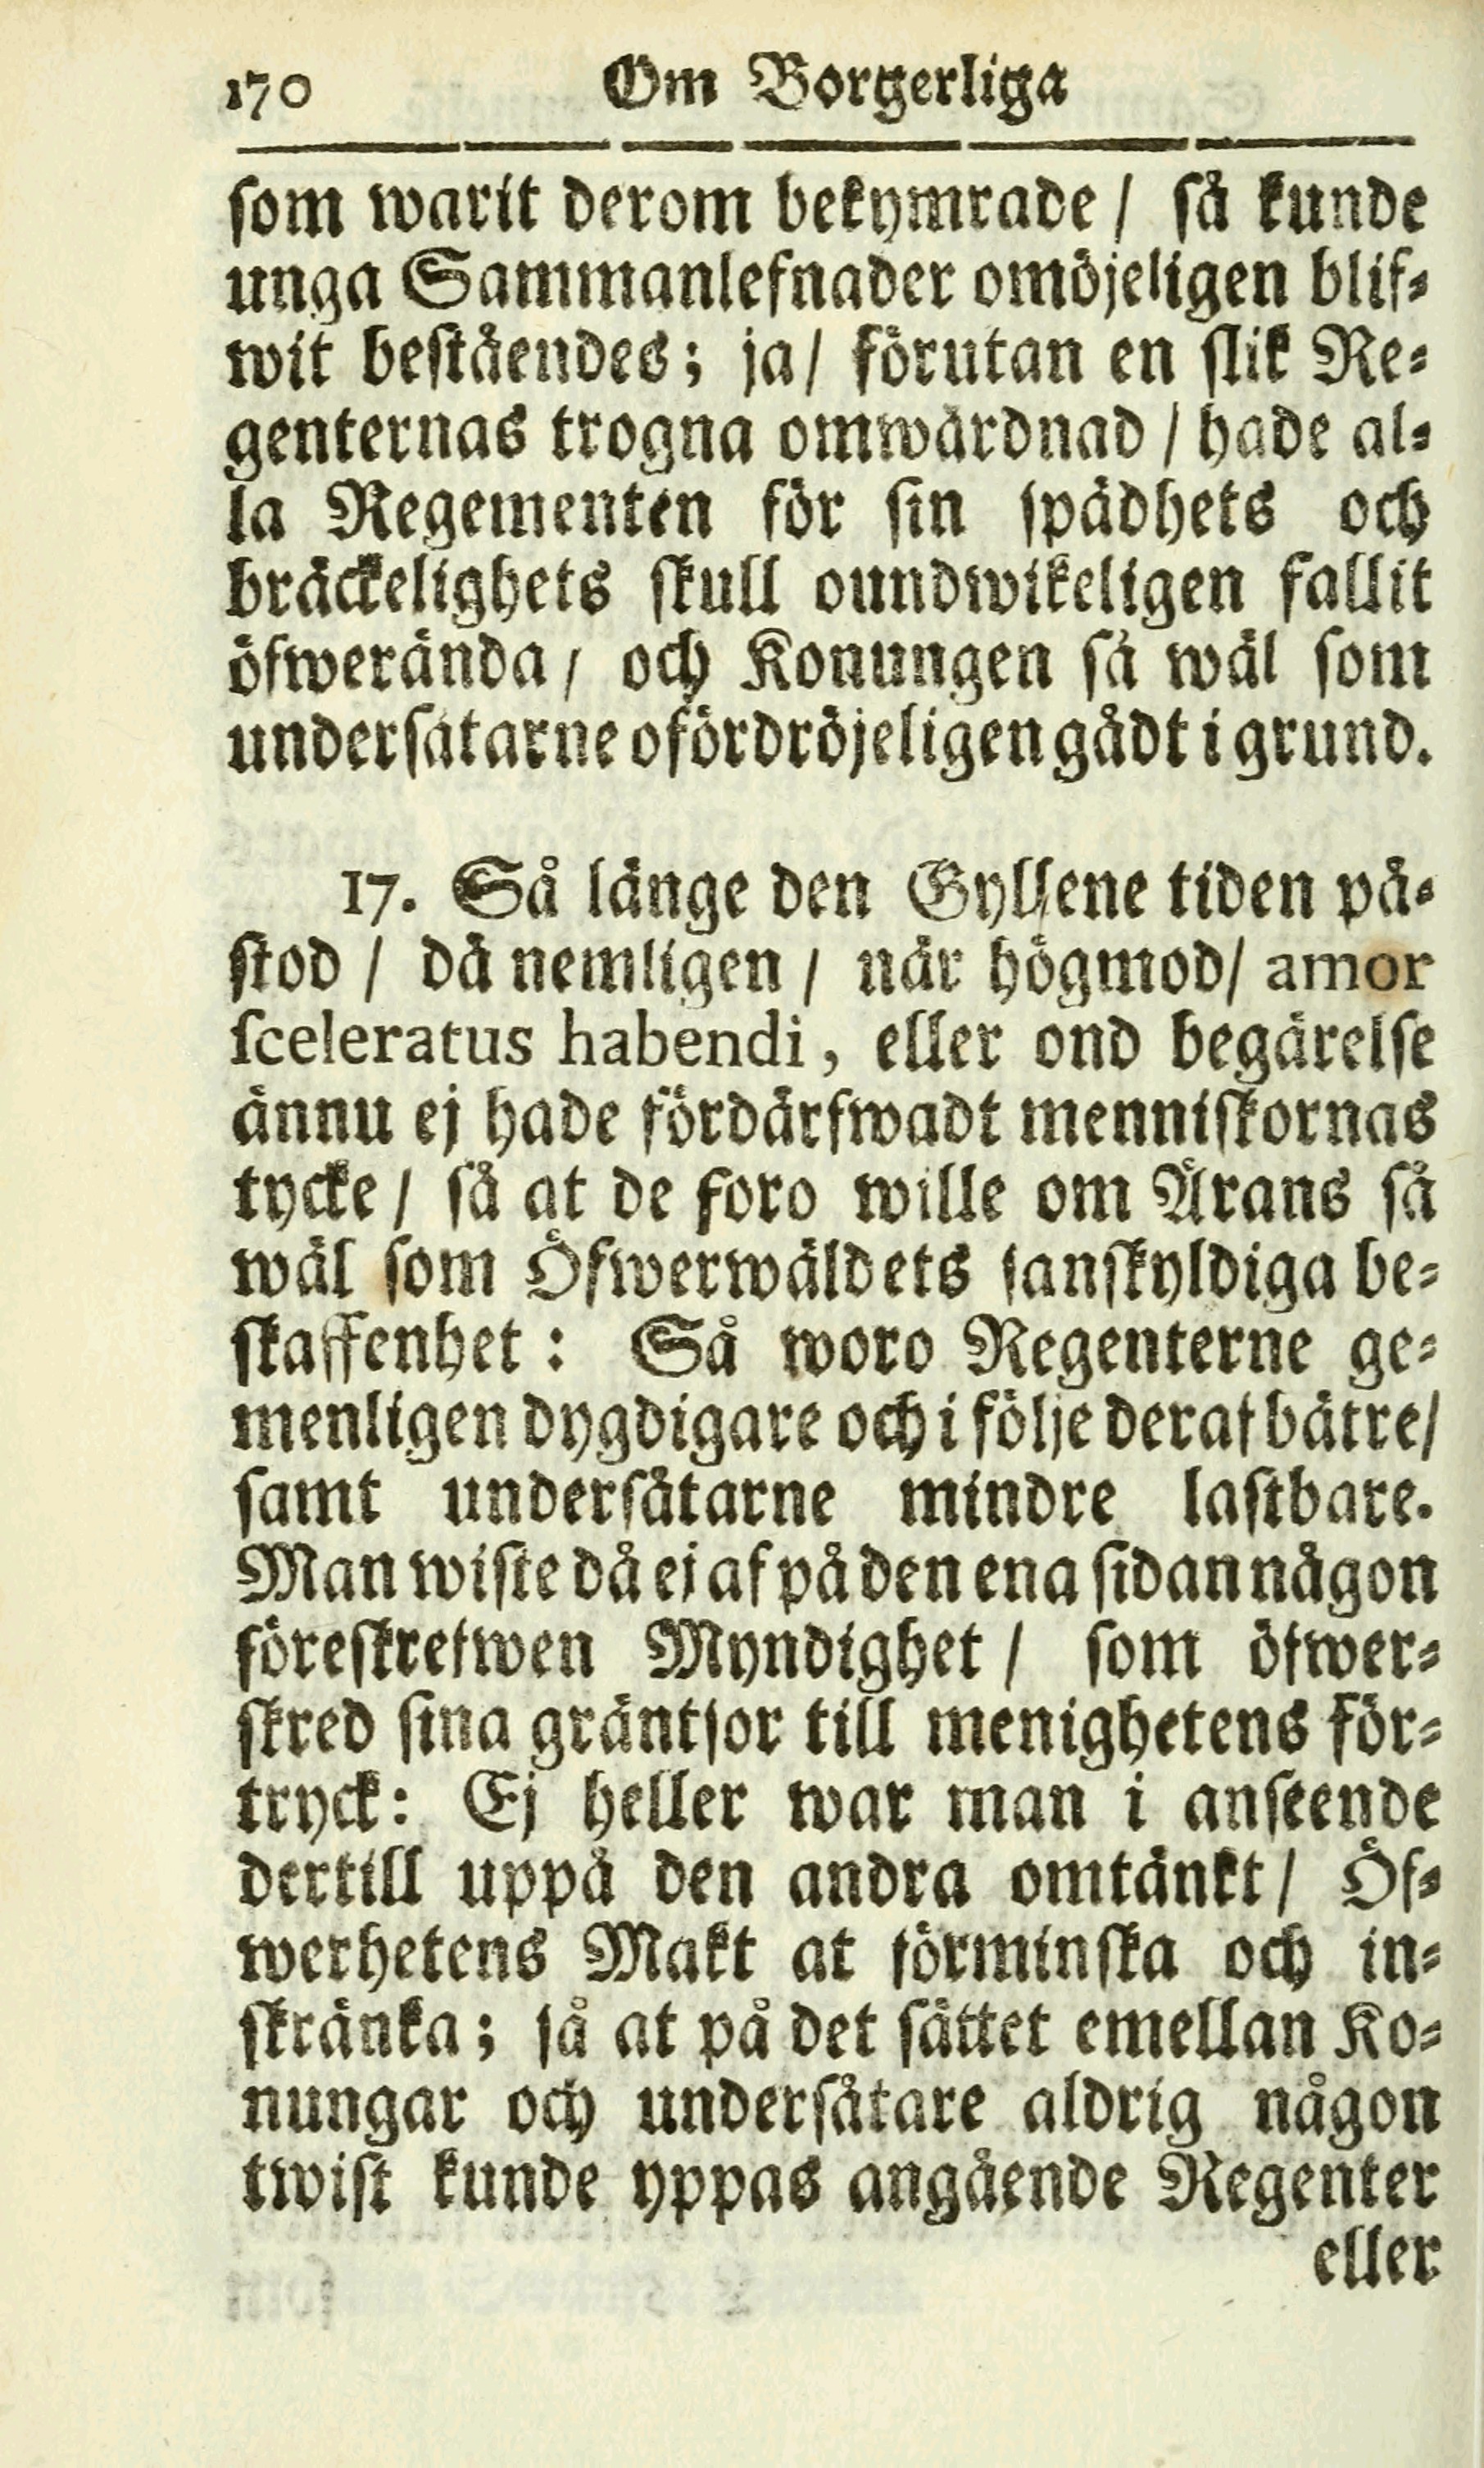 170 Om Borgerliga
som warit derom bekymrade / så kunde
unga Sammanlefnader omöjeligen blif-
wit beståendes; ja/ förutan en slik Re-
genternas trogna omwårdnad / hade al-
la Regementen för sin spädhets och
bräckelighets skull oundwikeligen fallit
öfwerända / och Konungen så wäl som
undersåtarne ofördröjeligen gådt i grund.
17. Så länge den Gyllene tiden på-
stod / då nemligen / när högmod/ amor
sceleratus habendi, eller ond begärelse
ännu ej hade fördärfwadt menniskornas
tycke / så at de foro wille om Ärans så
wäl som Öfwerwäldets sanskyldiga be-
skaffenhet: Så woro Regenterne ge-
menligen dygdigare och i följe deraf bätre/
samt undersåtarne mindre lastbare.
Man wiste då ej af på den ena sidan någon
föreskrefwen Myndighet / som öfwer-
skred sina gräntsor till menighetens för-
tryck: Ej heller war man i anseende
dertill uppå den andra omtänkt / Öf-
werhetens Makt at förminska och in-
skränka; så at på det sättet emellan Ko-
nungar och undersåtare aldrig någon
twist kunde yppas angående Regenter
eller